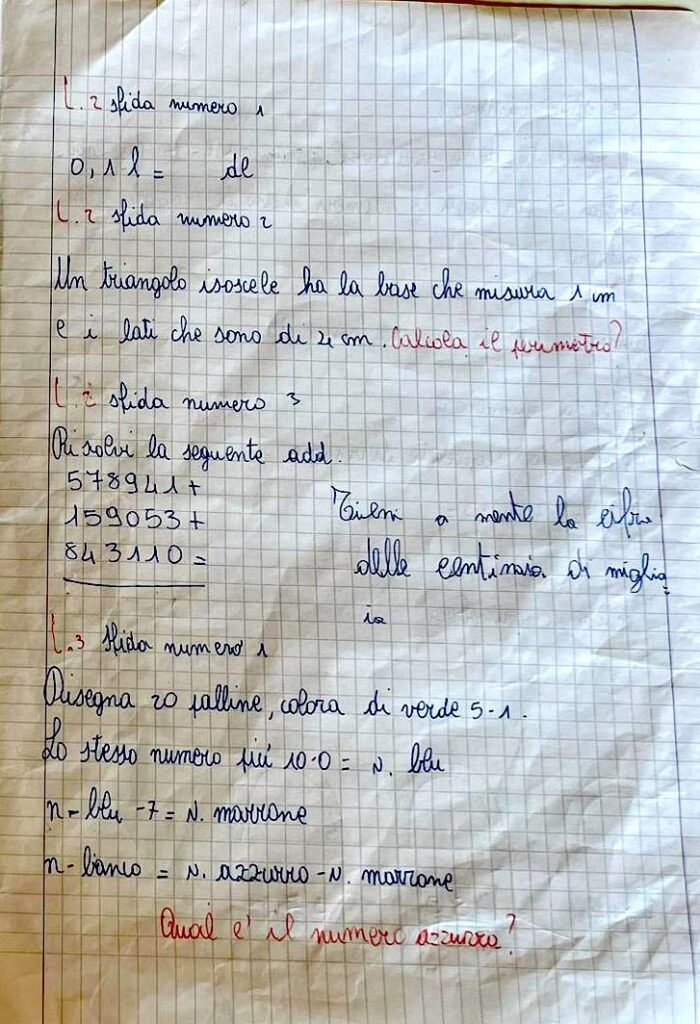 L.2 sfida numero 1
0,1 l = dl
L.2 sfida numero 2
Un triangolo isoscele ha la base che misura 1 cm
e i lati che sono di 2 cm. Calcola il perimetro?
L.2 sfida numero 3
Risolvi la seguente add.
578941+
159053+
843110=
Tieni a mente la cifra
delle centinaia di miglia
ia
L.3 sfida numero 1
Disegna 20 palline, colora di verde 5-1.
Lo stesso numero più 10-0 = N. blu
n- blu -7 = N. marrone
n- bianco = N. azzurro - N. marrone
Qual e' il numero azzurro?